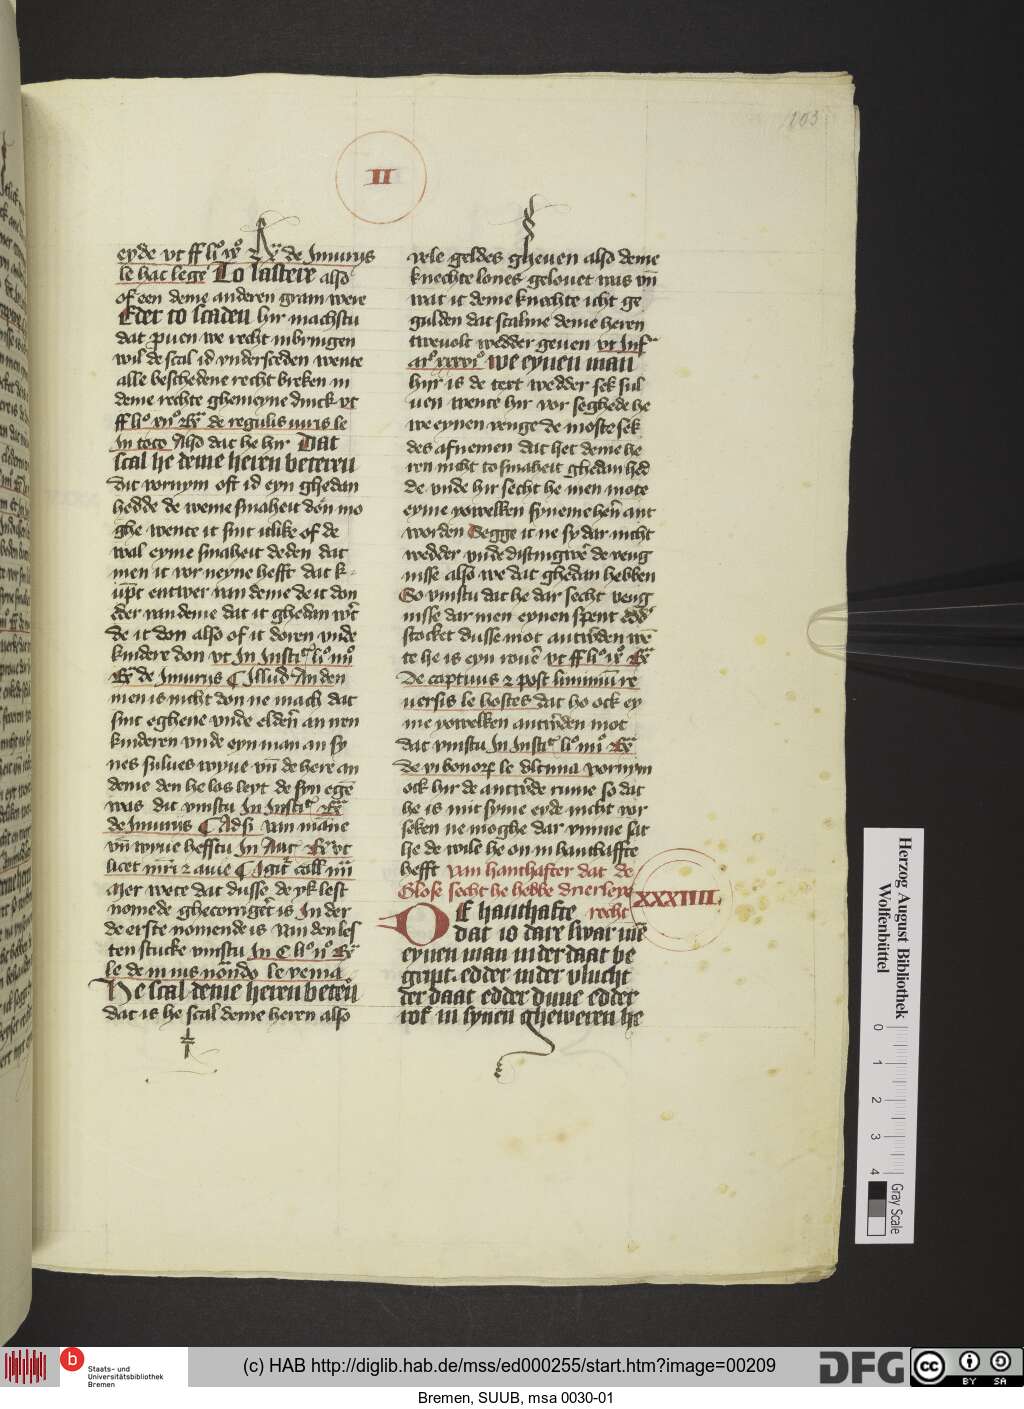 103
II
eyde vt ff li° iv° de Iniuriis
le hac lege To lastere also
of een deme anderen gram were
Eder to scaden hir machstu
dat pruen we recht inbringen
wil de scal id vndersceden wente
alle beschedene recht breken in
deme rechte ghemeyne dinck vt
ff li° de regulis iuris le
In toto Also dat he hir Dat
scal he deme heren beteren
dit vornym oft id eyn ghedan
hedde de weme smaheit don mo
ghe wente it sint itlike of de
wal eyme smaheit deden dat
men it vor neyne hefft dat k
entwer van deme de it don
dder van deme dat it ghedan
de it don also of it doren vnde
kindere don vt In Insti li° iiii°
de Iniuriis Illud An den
men is nicht don ne mach dat
sint eghene vnde an nen
kinderen vnde eyn man an sy
nes sulues wyue vn̄ de here an
deme den he las leyt de syn egē
was dit vinstu In Insti
de Iniuriis Adsi van māne
vn̄ wyue hefstu In Aut vt
licet
Mer wete dat dusse de yk lest
nomede ghecorriget is In der
de erste nomende is Van den les
ten stucke vinstu In C li° ii°
le de in ius
He scal deme heren beterē
dat is he scal deme heren also
vele geldes gheuen also deme
knechte lones gelouet was vn̄
wat it deme knechte icht ge
gulden dat scalme deme heren
twevolt wedder geuen vt Inf
ar° xxxvi° we eynen man
hiir is de text wedder sek sul
uen wente hir vor seghede he
we eynen venge de moste sek
des afnemen dat het deme he
ren nicht to smaheit ghedan hed
de vnde hir secht he men mote
eyme iowelken syneme ant
worden Segge it ne sy dar nicht
wedder vnde de veng
nisse also we dat ghedan hebben
So vinstu dat he dar secht veng
nisse dar men eynen spent
stocket dusse mot antw̄den wē
te he is eyn rouē vt ff li°
De captiuis & post liminiū re
uersis le hostes dat ho ock ey
me iowelken antw̄den mot
dat vinstu In Insti li° iiii°
de vi bonor le vltima vornym
ock hir de antw̄de rume so dat
he is mit syme eyde nicht vor
seken ne moghe dar vmme sit
he de wile he on in hanthaffte
hefft van hanthafter dat de
Glose secht he hebbe drierleye
XXXIIII.
recht
OF hanthafte
dat io dare swar me
eynen man in der daat be
gript. edder in der vlucht
der daat edder duue edder
rof in synen gheweren he
Herzog August Bibliothek
Wolfenbüttel
0 1 2 3 4
Gray Scale
b Staats- und
Universitätsbibliothek
Bremen
(c) HAB http://diglib.hab.de/mss/ed000255/start.htm?image=00209
DFG
cc BY SA
Bremen, SUUB, msa 0030-01